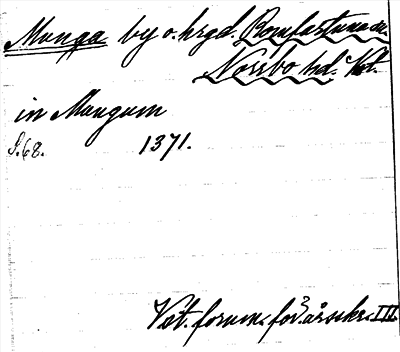 Munga by o. hrgd. Romfartuna sn.
Norrbo hd. Vst.
in Mangum
S. 68. 1371.
Väst. fornm. för:s årsskr. III